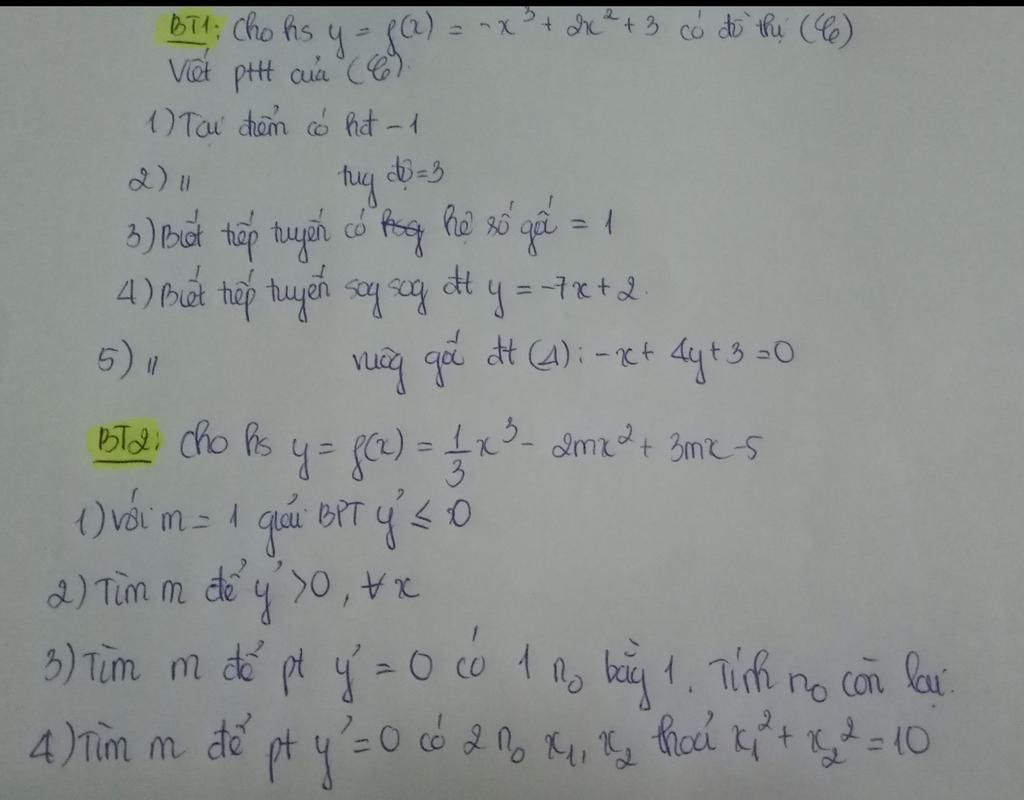 BT1: Cho hs y = f(x) = -x³ + 2x² + 3 có đồ thị (C)
Viết pttt của (C).
1) Tại điểm có hđ -1
2) 〃 tug độ = 3
3) Biết tiếp tuyến có hệ số gấ = 1
4) Biết tiếp tuyến sog sog đt y = -7x + 2.
5) 〃 vuôg gấ đt (Δ): -x + 4y + 3 = 0
BT2: Cho hs y = f(x) = 1/3 x³ - 2mx² + 3mx - 5
1) Với m = 1 giải BPT y' ≤ 0
2) Tìm m để y' > 0, ∀x
3) Tìm m để pt y' = 0 có 1 n₀ bằg 1. Tính n₀ còn lại.
4) Tìm m để pt y' = 0 có 2 n₀ x₁, x₂ thoả x₁² + x₂² = 10